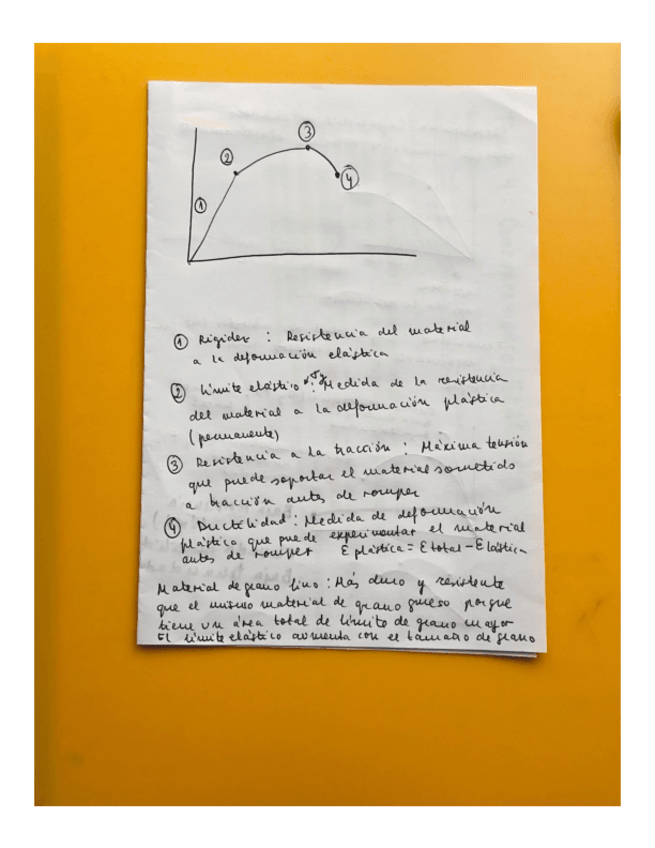 3
2
4
1
① Rigidez : Resistencia del material
a la deformación elástica
② Límite elástico : Medida de la resistencia
del material a la deformación plástica
(permanente)
③ Resistencia a la tracción : Máxima tensión
que puede soportar el material sometido
a tracción antes de romper
④ Ductilidad : Medida de deformación
plástica que puede experimentar el material
antes de romper ε plástica = ε total - ε lástica
Material de grano fino : Más duro y resistente
que el mismo material de grano grueso porque
tiene un área total de límite de grano mayor
El límite elástico aumenta con el tamaño de grano